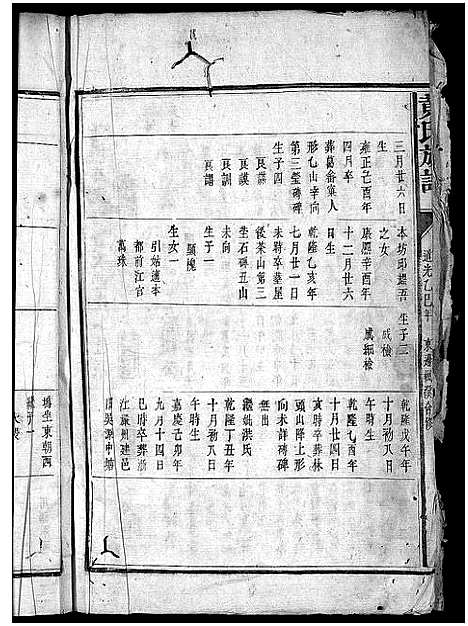 黄氏族譜
道光乙巳年
三月廿六日
生
雍正己酉年
四月卒
葬葛畬寡人
形乙山辛向
第三瑩磚碑
生子四
良謨
良謀
良訓
良謂
本坊邱
之女
康熙辛酉年
十二月廿六
日生
乾隆乙亥年
七月廿一日
未時卒葬屋
後茶山第三
坐石碑丑山
未向
生子一
顯槐
生女一
引姑適本
都前江官
萬珠
生子二
成檢
成細檢
乾隆戊午年
十月初八日
午時生
乾隆乙酉年
十月廿四日
亥時卒葬林
頭山降上形
向未詳磚碑
無出
繼妣洪氏
乾隆丁丑年
十月初八日
午時生
嘉慶己卯年
九月十四日
巳時卒葬浙
江蘇州建邑
坐東朝西